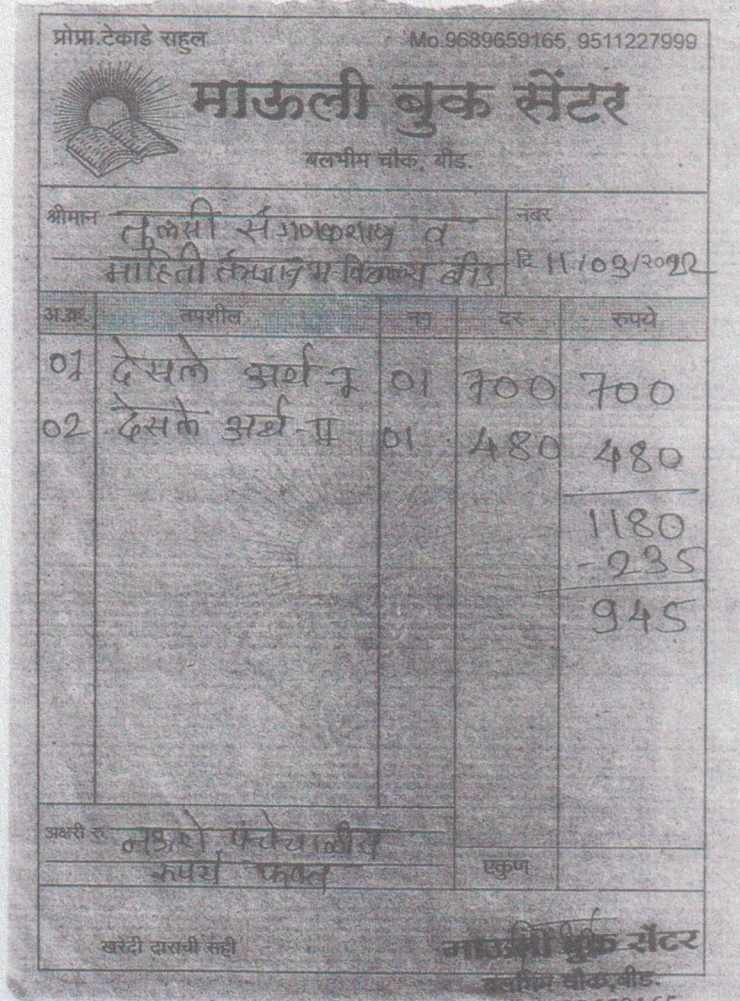 प्रोप्रा.टेकाडे राहुल Mo.9689659165, 9511227999
माऊली बुक सेंटर
बलभीम चौक, बीड.
श्रीमान तुळसी संगणकशास्त्र व नंबर
माहिती तंत्रज्ञान म विद्यालय बीड दि 11/03/२०22
अ.क्र. तपशील नग दर रुपये
01 देसले अर्थ-I 01 700 700
02 देसले अर्थ-II 01 480 480
1180
-235
945
अक्षरी रु. नऊशे पंचेचाळीस
रुपये फक्त
एकुण
खरेदी दाराची सही माऊली बुक सेंटर
बलभिम चौक,बीड.